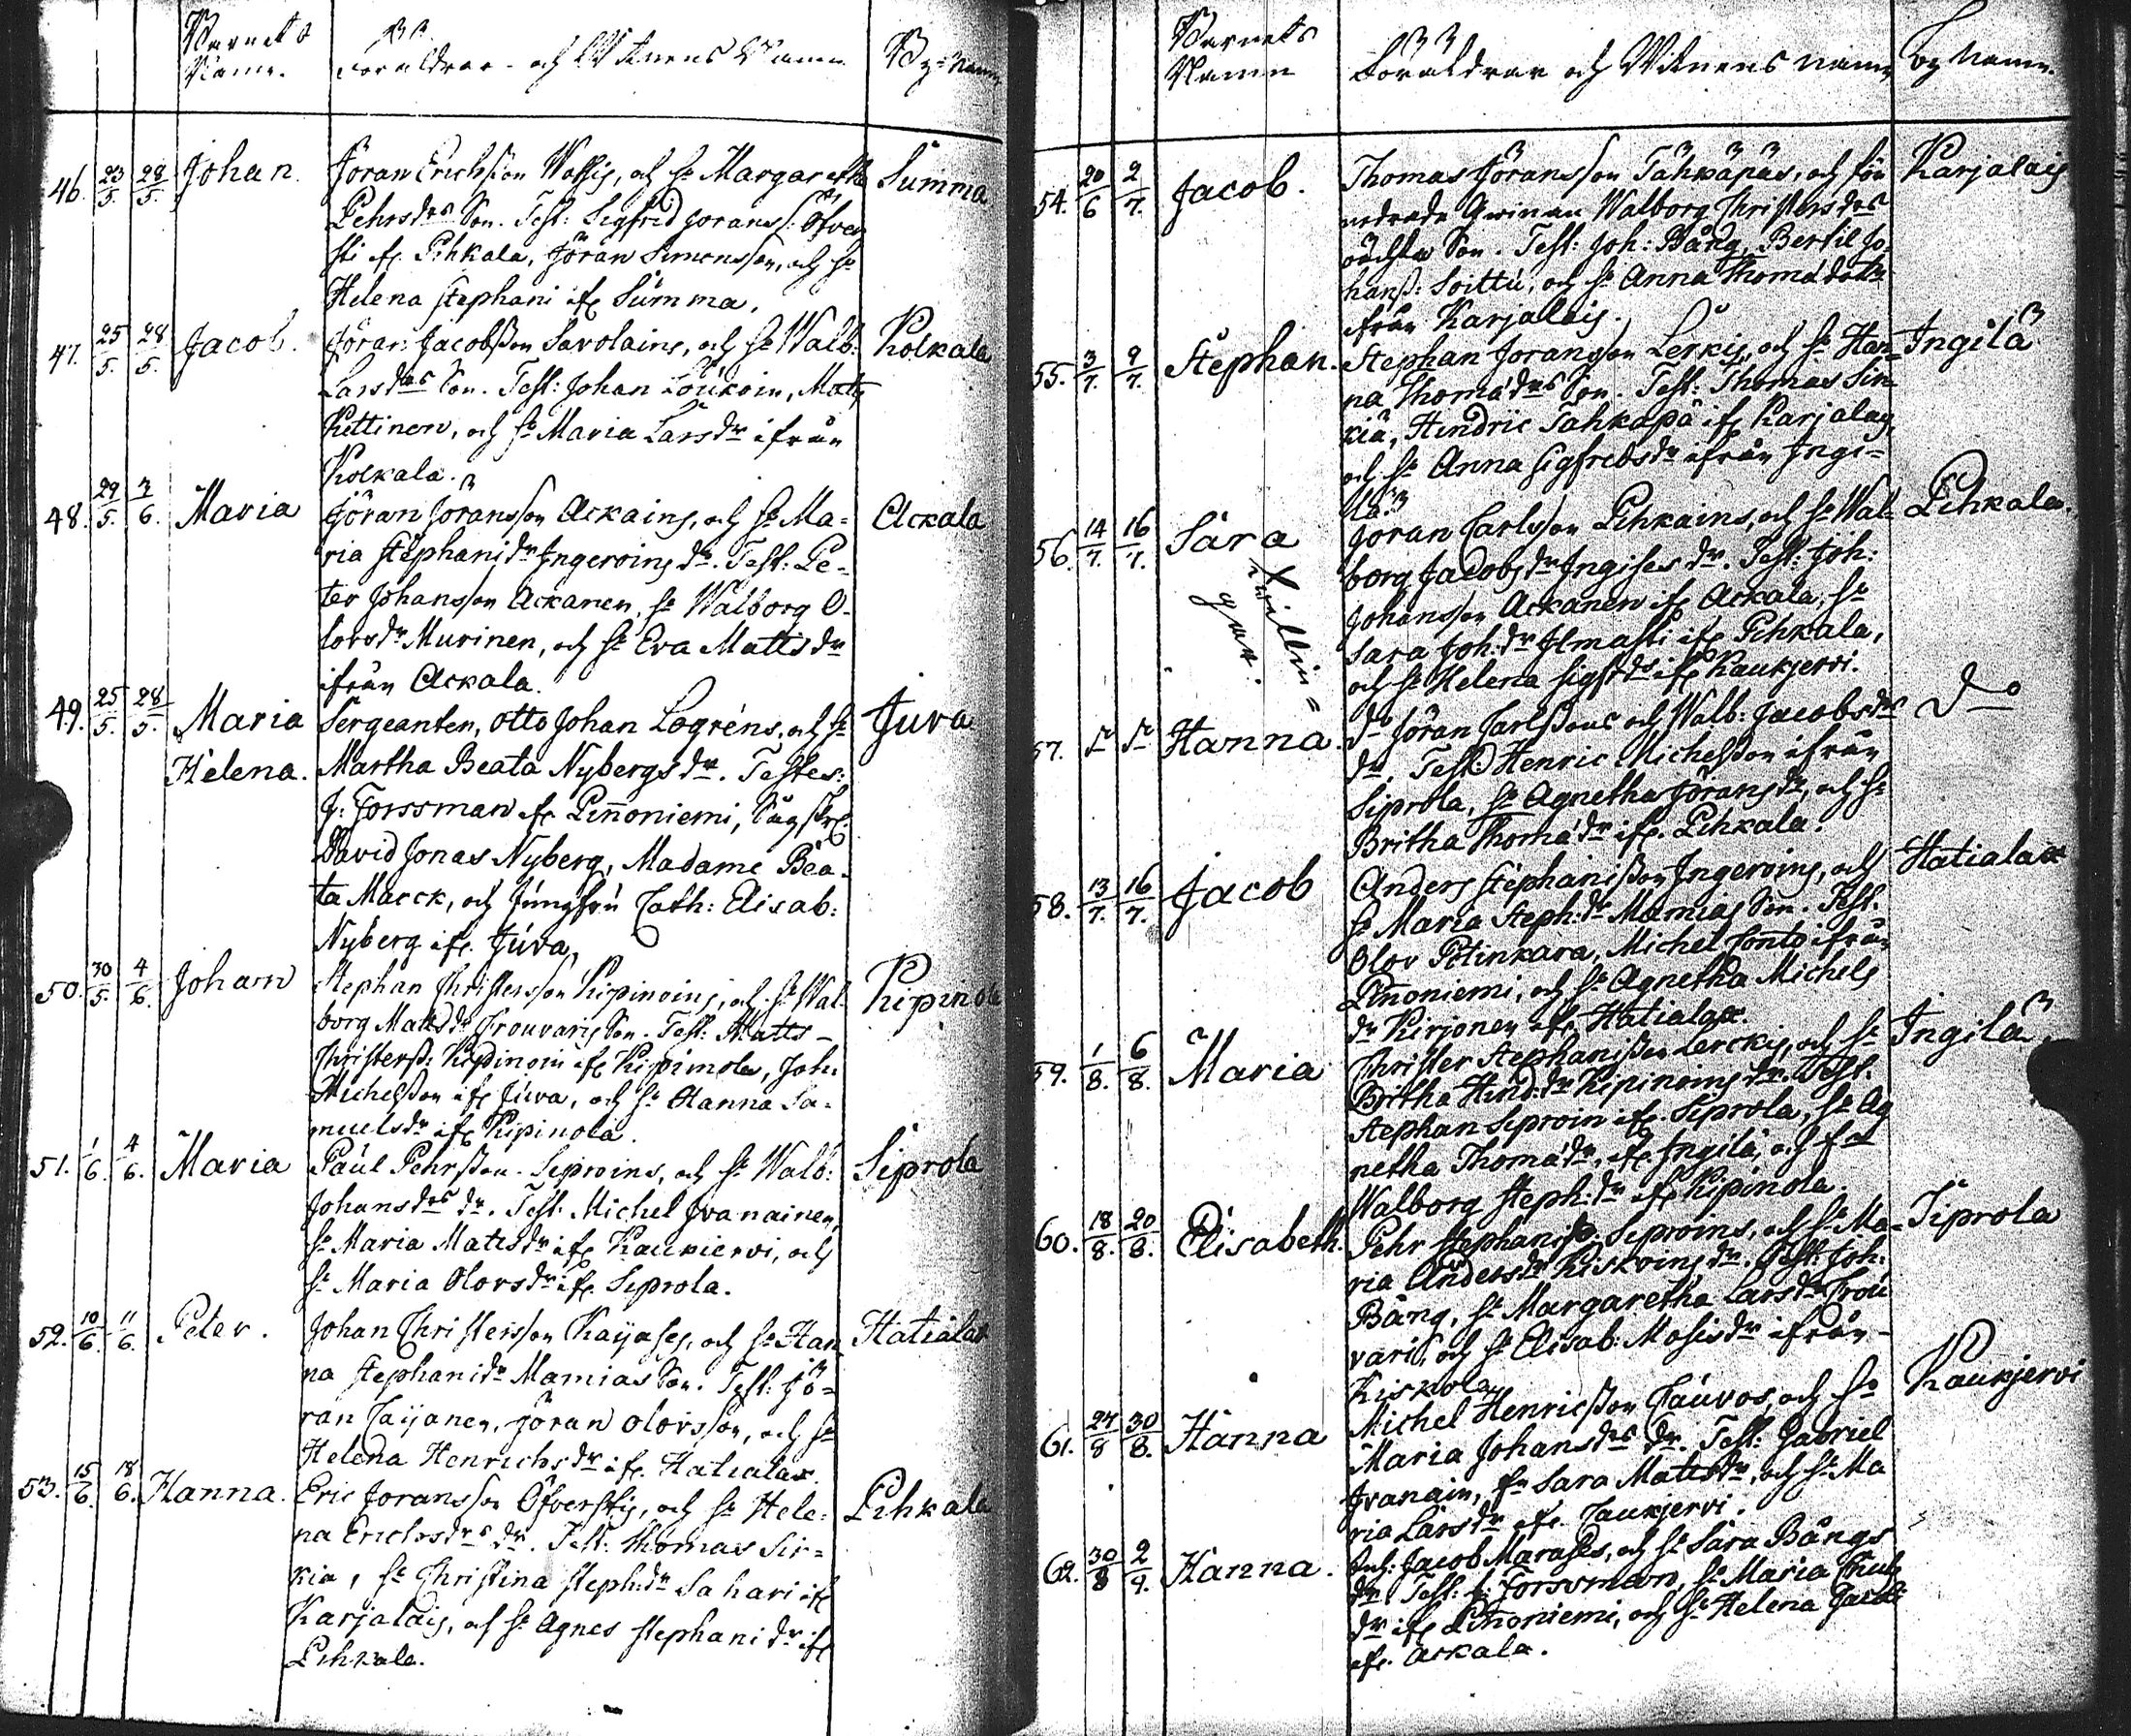 Barnets Namn. Föräldrar och Witnens Namn By Namn
46. 23/5. 28/5. Johan. Jöran Erichsson Wossis, och H: Margaretha Summa
Pehrsdrs Son. Test: Sigfred Joranss: Öfver
sti if. Pihkala, Jöran Simonsson, och H:
Helena Stephani if. Summa.
47. 25/5. 28/5. Jacob. Jöran Jacobsson Savolains, och H: Walb: Kolkala
Larsdrs Son. Test: Johan Loukoin, Matts
Kettinen, och H: Maria Larsdr ifrån
Kolkala.
48. 29/5. 3/6. Maria Jöran Joransson Ackains, och H: Ma= Ackala
ria Stephanidr Ingeroins dr. Test: Pe=
ter Johansson Ackanen, H: Walborg O-
lovsdr Murinen, och H: Eva Mattsdr
ifrån Ackala.
49. 25/5. 28/5. Maria Sergeanten, Otto Johan Logréns, och H: Juva
Helena. Martha Beata Nybergs dr. Testes:
J: Forssman if. Linnoniemi,
David Jonas Nyberg, Madame Bea-
ta Macck, och Jungfru Cath: Elisab:
Nyberg if. Juva.
50. 30/5. 4/6. Johan Stephan Christersson Kipinoins, och H: Wal- Kipinola
borg Mattsdr Trouvaris Son. Test: Matts
Christerss: Kipinoin if. Kipinola, Joh.
Michelsson if. Juva, och H: Hanna Sa-
muelsdr if. Kipinola.
51. 1/6. 4/6. Maria Paul Pehrsson Siproins, och H: Walb: Siprola
Johansdrs dr. Test: Michel Ivanainen,
H: Maria Mattsdr if. Kaukiervi, och
H: Maria Olovsdr if. Siprola.
52. 10/6. 11/6. Peter. Johan Christersson Kaijases, och H: Han Hatialax
na Stephanidr Mamias Son. Test: Jö=
ran Caijanen, Jöran Olovsson, och H:
Helena Henrichsdr if. Hatialax.
53. 15/6. 18/6. Hanna. Eric Joransson Öfverstis, och H: Hele= Pihkala
na Erichsdrs dr. Test: Thomas Sir=
kia, H: Christina Steph:dr Sahari if
Karjalais, och H: Agnes Stephanidr if
Pihkala.
Barnets Namn Föräldrar och Witnens namn By Namn.
54. 20/6 2/7. Jacob. Thomas Jöransson Tähkäpäs, och för Karjalais
Qwinnan Walborg Christersdrs
oächta Son. Test: Joh: Bång, Bertil Jo-
hanss: Soittu, och H: Anna Thomædotter
ifrån Karjalais.
55. 3/7. 9/7. Stephan. Stephan Joransson Lerkis, och H: Han= Ingilä
na Thomædrs Son. Test: Thomas Sir-
kiä, Hindric Tahkapä if Karjalais,
och H: Anna Sigfredsdr ifrån Ingi=
lä.
56. 14/7. 16/7. Sara Jöran Carlsson Pihkains, och H: Wal- Pihkala.
Twillin= gar. borg Jacobsdr Ingises dr. Test: Joh:
Johansson Ackanen if. Ackala, H:
Sara Joh:dr Ilmasti if. Pihkala,
och H: Helena Sigfrdr if Kaukjervi.
57. Hanna. do Jöran Carlssons och Walb: Jacobsdrs do
dr. Test: Henric Michelsson ifrån
Siprola, H: Agnetha Jöransdr, och H:
Britha Thomædr if. Pihkala.
58. 13/7. 16/7. Jacob Anders Stephanisson Ingeroins, och Hatialax
H: Maria Steph:dr Mamias Son. Test.
Olov Potinkara, Michel Conto ifrån
Linnoniemi, och H: Agnetha Michels
dr Kirjonen if. Hatialax.
59. 1/8. 6/8. Maria Christer Stephanisson Lerckis, och H: Ingilä
Britha Hind:dr Kipinoins dr. Test.
Stephan Siproin if. Siprola, H: Ag
netha Thomædr, if. Ingilä, och
Walborg Steph:dr if. Kipinola.
60. 18/8. 20/8. Elisabeth. Pehr Stephaniss: Siproins, och H: Ma= Siprola
ria Andersdr Kiskoins dr. Test: Joh:
Bång, H: Margaretha Larsdr Trou
vari, och H: Elisab: Mosisdr ifrån
Kiskola.
61. 24/8 30/8. Hanna Michel Henricsson Cauvos, och H: Kaukjervi
Maria Johansdrs dr. Test: Gabriel
Ivanain, H: Sara Mattsdr, och H: Ma
ria Larsdr if. Caukjervi.
62. 30/8 2/9. Hanna. Jacob Marases, och H: Sara Bångs
dr. Test: J: Forssman, H: Maria
dr if. Linnoniemi, och H: Helena Jacob:
if. Ackala.